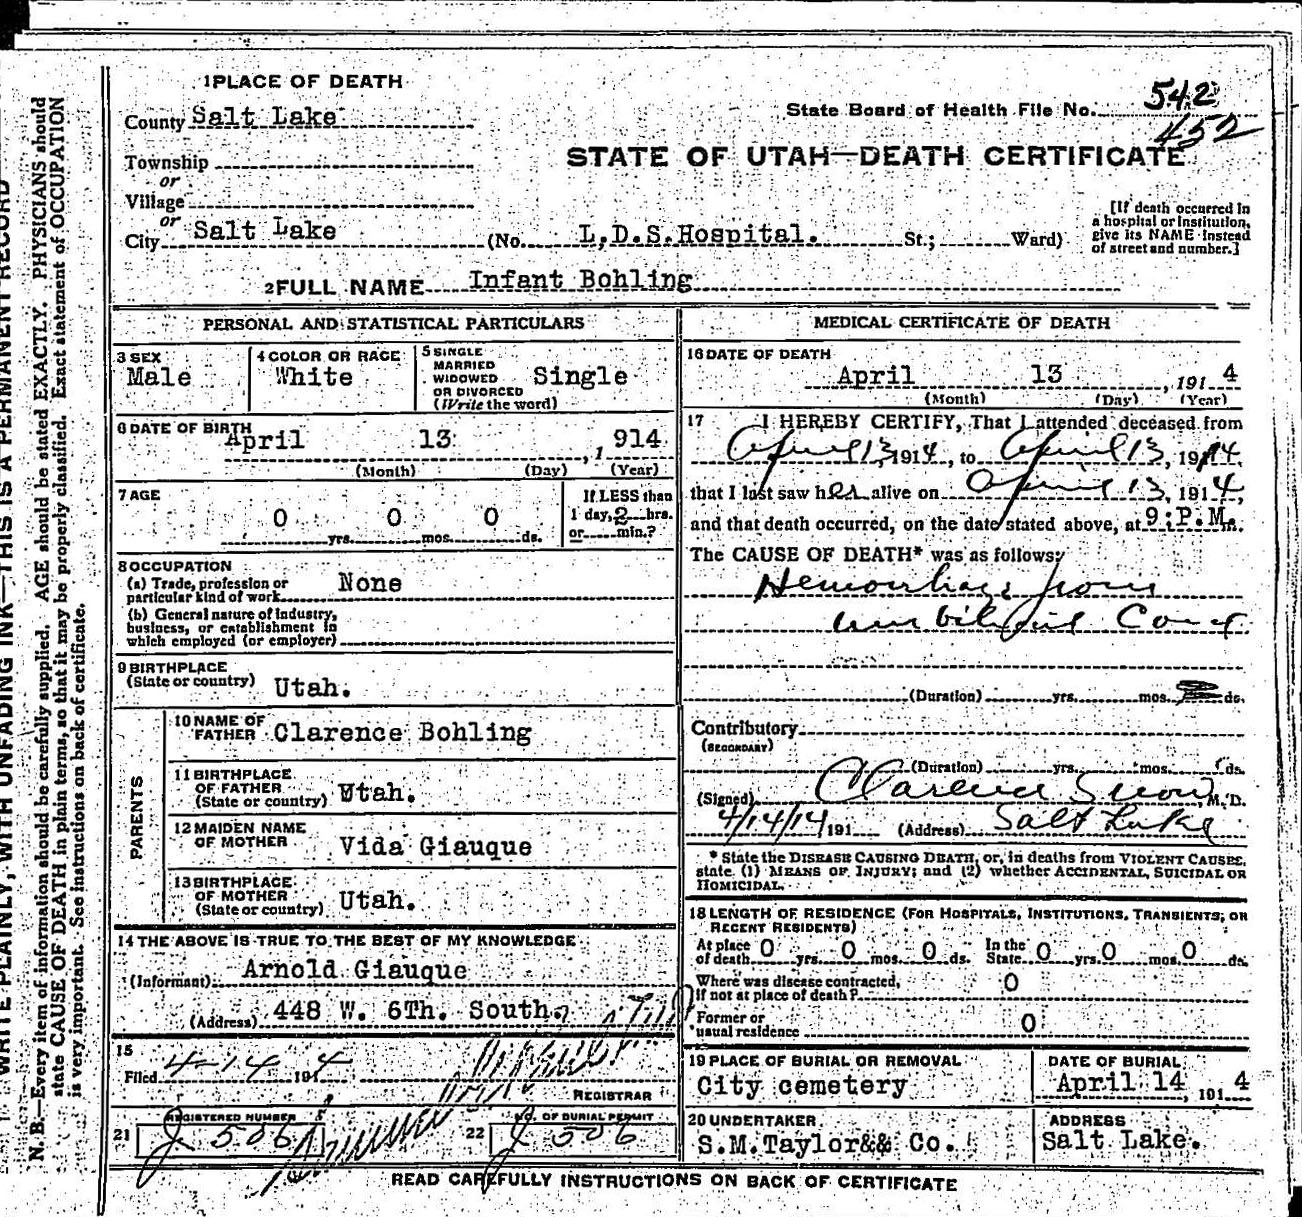 1 PLACE OF DEATH
County Salt Lake
Township
or
Village
or
City Salt Lake (No. L.D.S.Hospital. St.; Ward)
State Board of Health File No. 542
452
STATE OF UTAH—DEATH CERTIFICATE
[If death occurred in
a hospital or institution,
give its NAME instead
of street and number.]
2 FULL NAME Infant Bohling
PERSONAL AND STATISTICAL PARTICULARS
3 SEX
Male
4 COLOR OR RACE
White
5 SINGLE
MARRIED
WIDOWED
OR DIVORCED
(Write the word)
Single
6 DATE OF BIRTH
April 13 , 1 914
(Month) (Day) (Year)
7 AGE
0 yrs. 0 mos. 0 ds.
If LESS than
1 day, 2 hrs.
or min.?
8 OCCUPATION
(a) Trade, profession or
particular kind of work None
(b) General nature of industry,
business, or establishment in
which employed (or employer)
9 BIRTHPLACE
(State or country) Utah.
PARENTS
10 NAME OF
FATHER Clarence Bohling
11 BIRTHPLACE
OF FATHER
(State or country) Utah.
12 MAIDEN NAME
OF MOTHER Vida Giauque
13 BIRTHPLACE
OF MOTHER
(State or country) Utah.
14 THE ABOVE IS TRUE TO THE BEST OF MY KNOWLEDGE
(Informant) Arnold Giauque
(Address) 448 W. 6Th. South.
15
Filed 4-14 191 4
REGISTRAR
21 REGISTERED NUMBER
J 506
22 NO. OF BURIAL PERMIT
J 506
MEDICAL CERTIFICATE OF DEATH
16 DATE OF DEATH
April 13 , 191 4
(Month) (Day) (Year)
17 I HEREBY CERTIFY, That I attended deceased from
April 13, 1914, to April 13, 1914,
that I last saw her alive on April 13, 1914,
and that death occurred, on the date stated above, at 9:P.M.
The CAUSE OF DEATH* was as follows:
Hemorrhage from
umbilical Cord
(Duration) yrs. mos. ds.
Contributory
(SECONDARY)
(Duration) yrs. mos. ds.
(Signed) Clarence Snow, M.D.
4/14/14 191 (Address) Salt Lake
* State the DISEASE CAUSING DEATH, or, in deaths from VIOLENT CAUSES,
state (1) MEANS OF INJURY; and (2) whether ACCIDENTAL, SUICIDAL OR
HOMICIDAL.
18 LENGTH OF RESIDENCE (FOR HOSPITALS, INSTITUTIONS, TRANSIENTS, OR
RECENT RESIDENTS)
At place
of death 0 yrs. 0 mos. 0 ds. In the
State 0 yrs. 0 mos. 0 ds.
Where was disease contracted,
if not at place of death? 0
Former or
usual residence 0
19 PLACE OF BURIAL OR REMOVAL
City cemetery
DATE OF BURIAL
April 14 , 191 4
20 UNDERTAKER
S.M.Taylor&& Co.
ADDRESS
Salt Lake.
READ CAREFULLY INSTRUCTIONS ON BACK OF CERTIFICATE
WRITE PLAINLY, WITH UNFADING INK—THIS IS A PERMANENT RECORD
N. B.—Every item of information should be carefully supplied. AGE should be stated EXACTLY. PHYSICIANS should
state CAUSE OF DEATH in plain terms, so that it may be properly classified. Exact statement of OCCUPATION
is very important. See instructions on back of certificate.